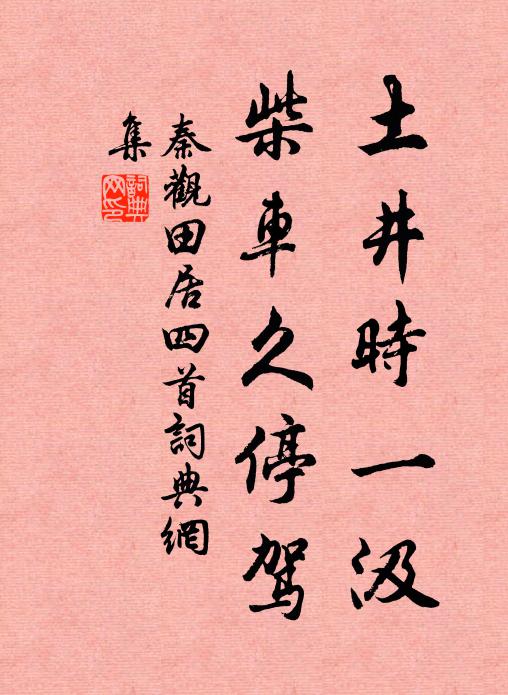 土井時一汲
柴車久停驾
秦觀田居四首詞典網
集
詞典
网印